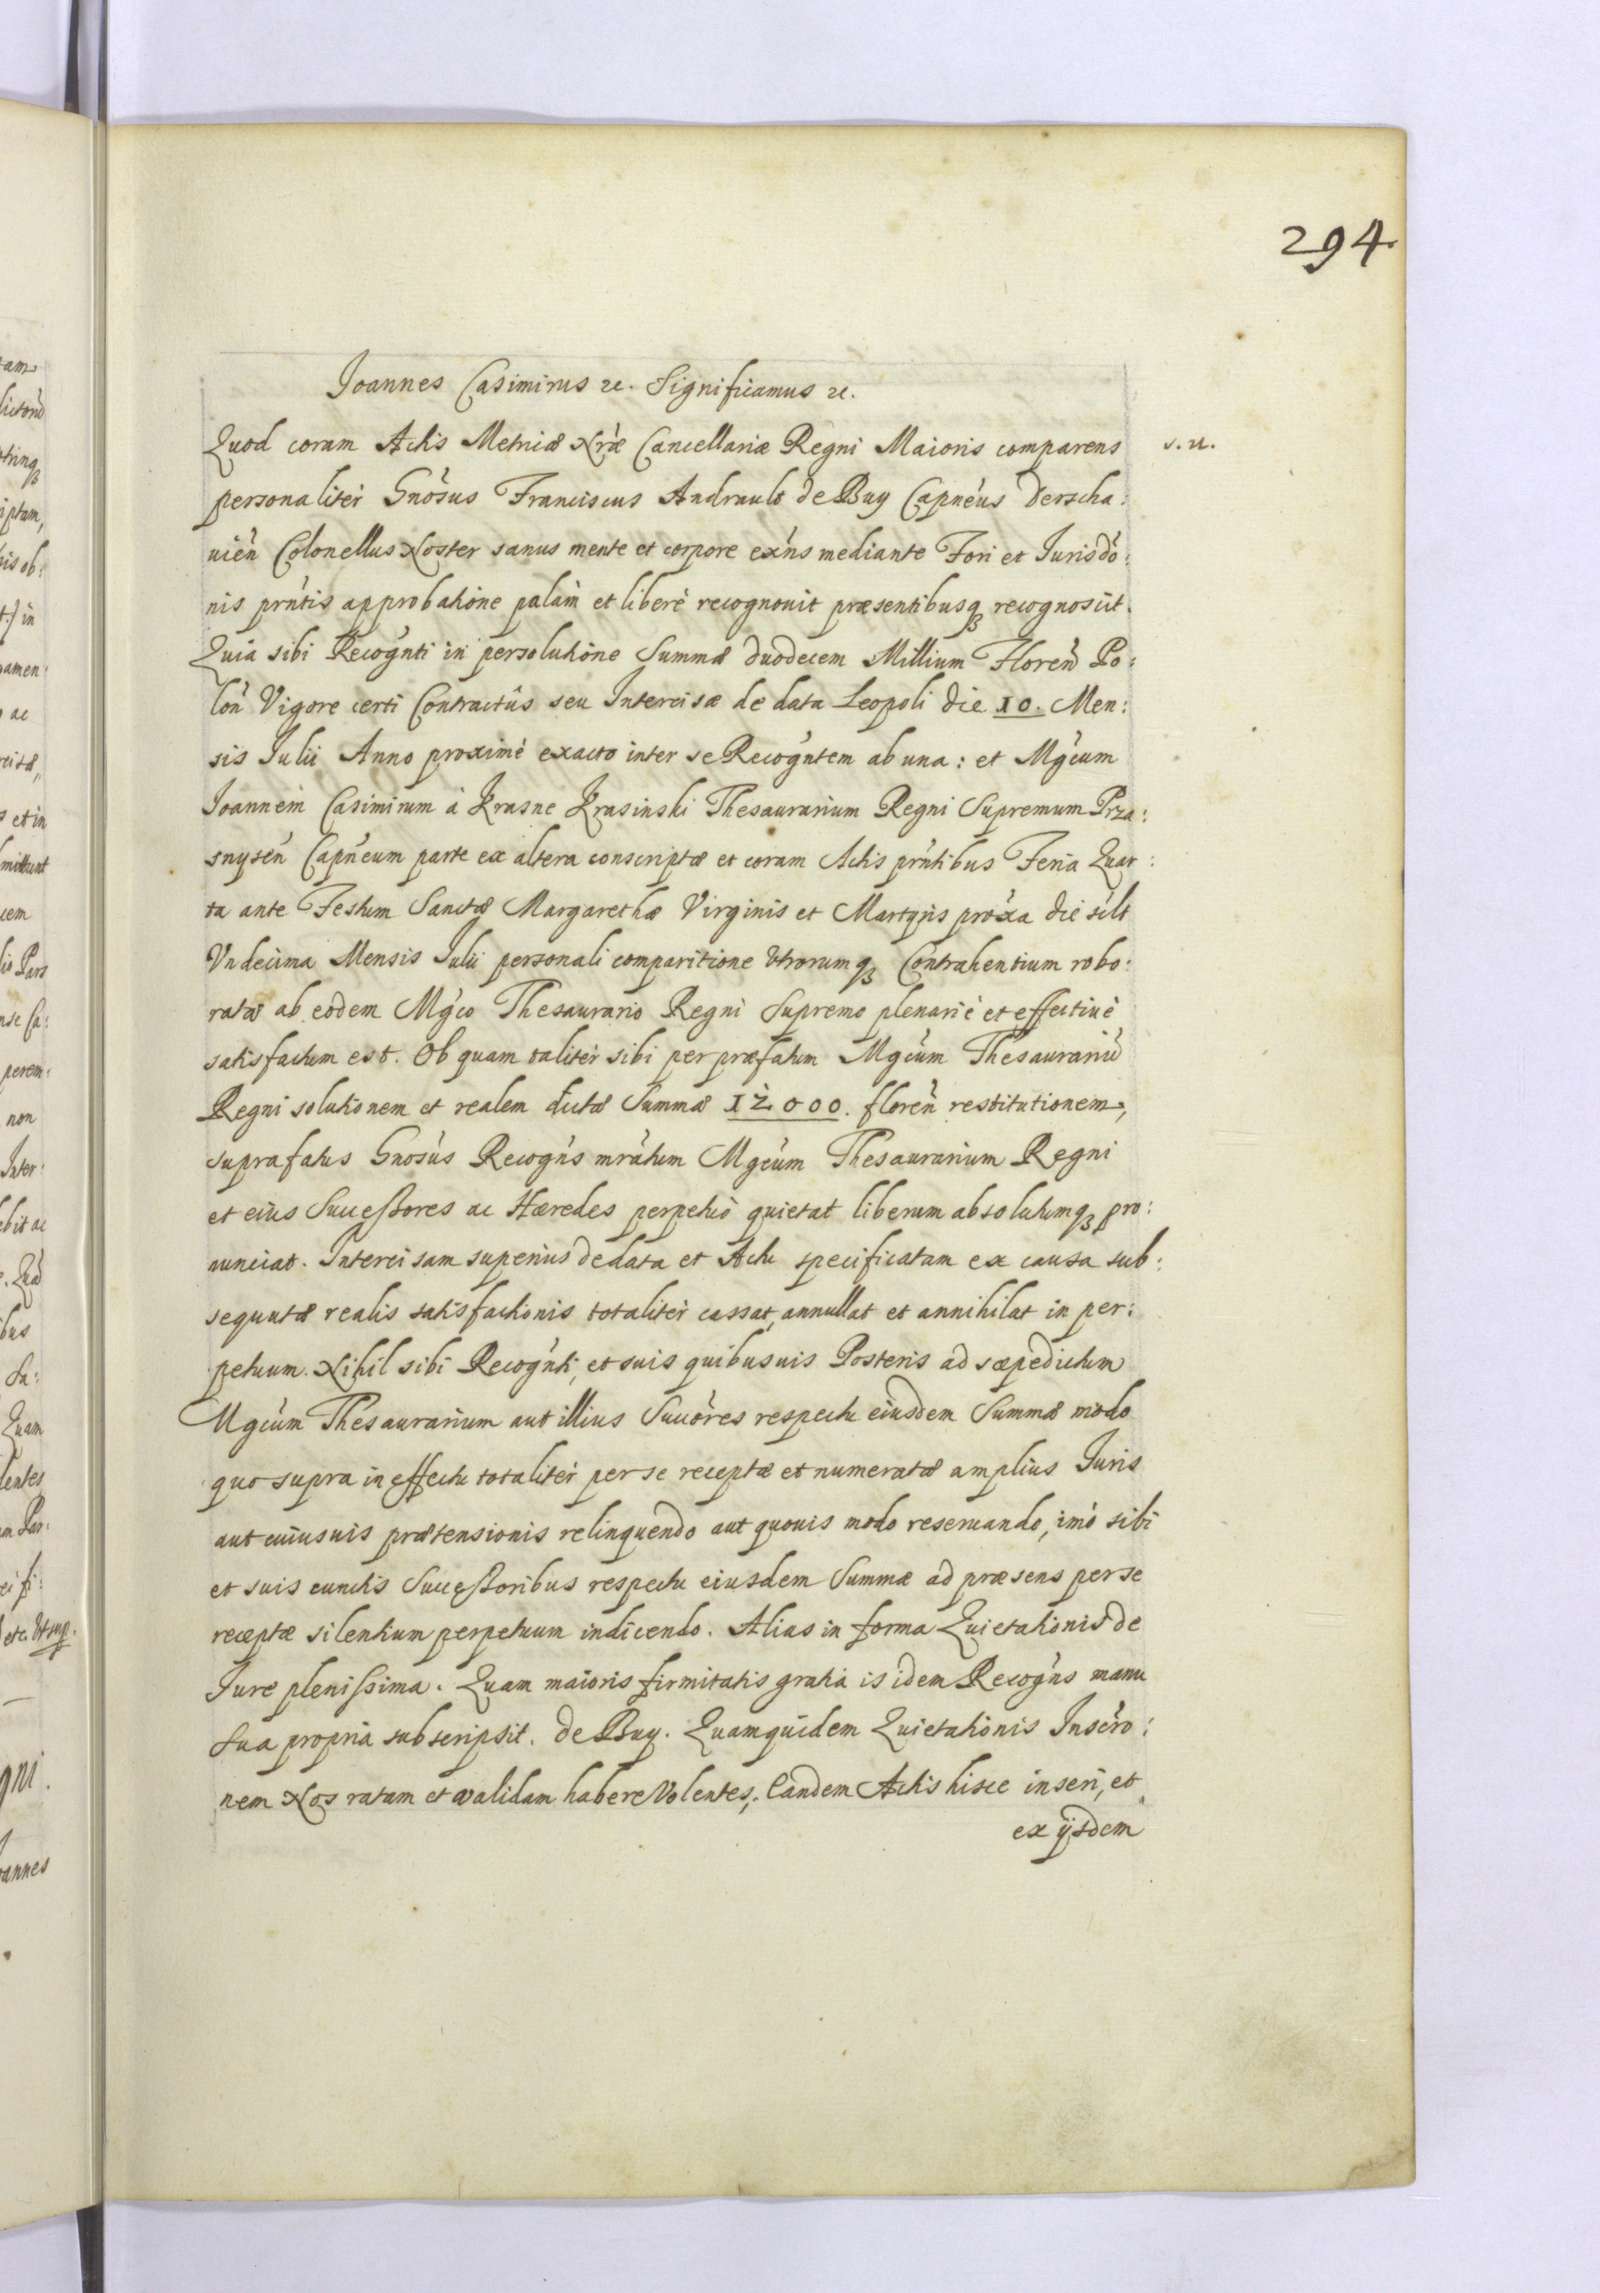 294.
Joannes Casimirus etc. Significamus etc.
Quod coram Actis Metricæ Nræ Cancellariæ Regni Maioris comparens
s. u.
personaliter Gnosus Franciscus Andrault de Buy Capneus Derscha:
uien Colonellus Noster sanus mente et corpore exns mediante Fori et Jurisdo:
nis prntis approbatione palàm et liberè recognouit præsentibusq recognoscit.
Quia sibi Recognti in persolutione Summæ duodecem Millium Floren Po:
lon Vigore certi Contractûs seu Intercisæ de data Leopoli die 10. Men:
sis Julii Anno proximè exacto inter se Recogntem ab una: et Mgcum
Joannem Casimirum à Krasne Krasinski Thesaurarium Regni Supremum Prza:
snysen Capneum parte ex altera conscriptæ et coram Actis prntibus Feria Quar:
ta ante Festum Sanctæ Margarethæ Virginis et Martyris proxa die silt
Vndecima Mensis Julii personali comparitione Vtrorumq Contrahentium robo:
ratæ ab eodem Mgco Thesaurario Regni Supremo plenariè et effectiuè
satisfactum est. Ob quam taliter sibi per præfatum Mgcum Thesaurariu
Regni solutionem et realem dictæ Summæ 12000. floren restitutionem,
suprafatus Gnosus Recogns mratum Mgcum Thesaurarium Regni
et eius Successores ac Hæredes perpetuò quietat liberum absolutumq pro:
nunciat. Intercisam superius de data et Actu specificatam ex causa sub:
sequutæ realis satisfactionis totaliter cassat, annullat et annihilat in per:
petuum. Nihil sibi Recognti, et suis quibusuis Posteris ad sæpedictum
Mgcum Thesaurarium aut illius Succores respectu eiusdem Summæ modo
quo supra in effectu totaliter per se receptæ et numeratæ amplius Juris
aut cuiusuis prætensionis relinquendo aut quouis modo reseruando, imò sibi
et suis cunctis Successoribus respectu eiusdem Summæ ad præsens per se
receptæ silentium perpetuum indicendo. Alias in forma Quietationis de
Jure plenissima. Quam maioris firmitatis gratia is idem Recogns manu
sua propria subscripsit. de Buy. Quamquidem Quietationis Inscro:
nem Nos ratam et validam habere Volentes, Eandem Actis hisce inseri, et
ex ijsdem